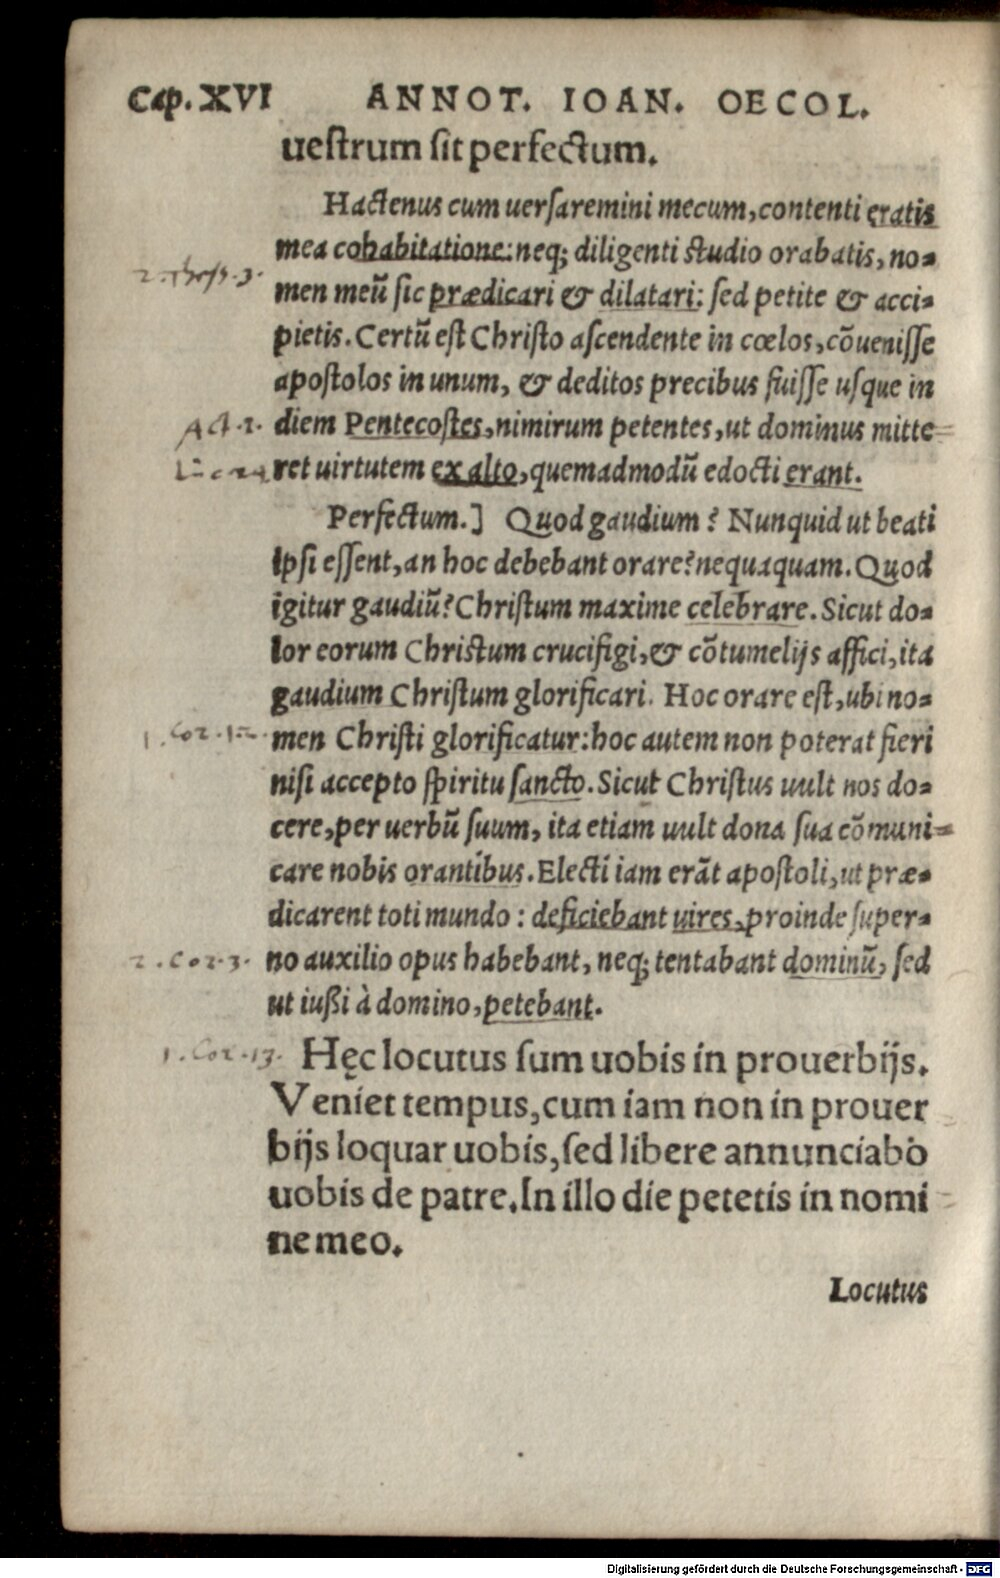 Cap. XVI ANNOT. IOAN. OECOL.
uestrum sit perfectum.
Hactenus cum uersaremini mecum, contenti eratis
mea cohabitatione: neq; diligenti studio orabatis, no=
2. Thess. 3.
men meũ sic prædicari & dilatari: sed petite & acci=
pietis. Certũ est Christo ascendente in cœlos, cõuenisse
apostolos in unum, & deditos precibus fuisse usque in
Act. 1. diem Pentecostes, nimirum petentes, ut dominus mitte=
ret uirtutem ex alto, quemadmodũ edocti erant.
Perfectum.] Quod gaudium? Nunquid ut beati
ipsi essent, an hoc debebant orare? nequaquam. Quod
igitur gaudiũ? Christum maxime celebrare. Sicut do=
lor eorum Christum crucifigi, & cõtumelijs affici, ita
gaudium Christum glorificari. Hoc orare est, ubi no=
1. Cor. 12. men Christi glorificatur: hoc autem non poterat fieri
nisi accepto spiritu sancto. Sicut Christus uult nos do=
cere, per uerbũ suum, ita etiam uult dona sua cõmuni=
care nobis orantibus. Electi iam erãt apostoli, ut præ=
dicarent toti mundo: deficiebant uires, proinde super=
2. Cor. 3. no auxilio opus habebant, neq; tentabant dominũ, sed
ut iußi à domino, petebant.
1. Cor. 13. Hęc locutus sum uobis in prouerbijs.
Veniet tempus, cum iam non in prouer
bijs loquar uobis, sed libere annunciabo
uobis de patre. In illo die petetis in nomi
ne meo.
Locutus
Digitalisierung gefördert durch die Deutsche Forschungsgemeinschaft - DFG